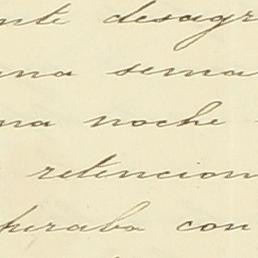 nte desagr
na sema
na noche
retencion
peraba con